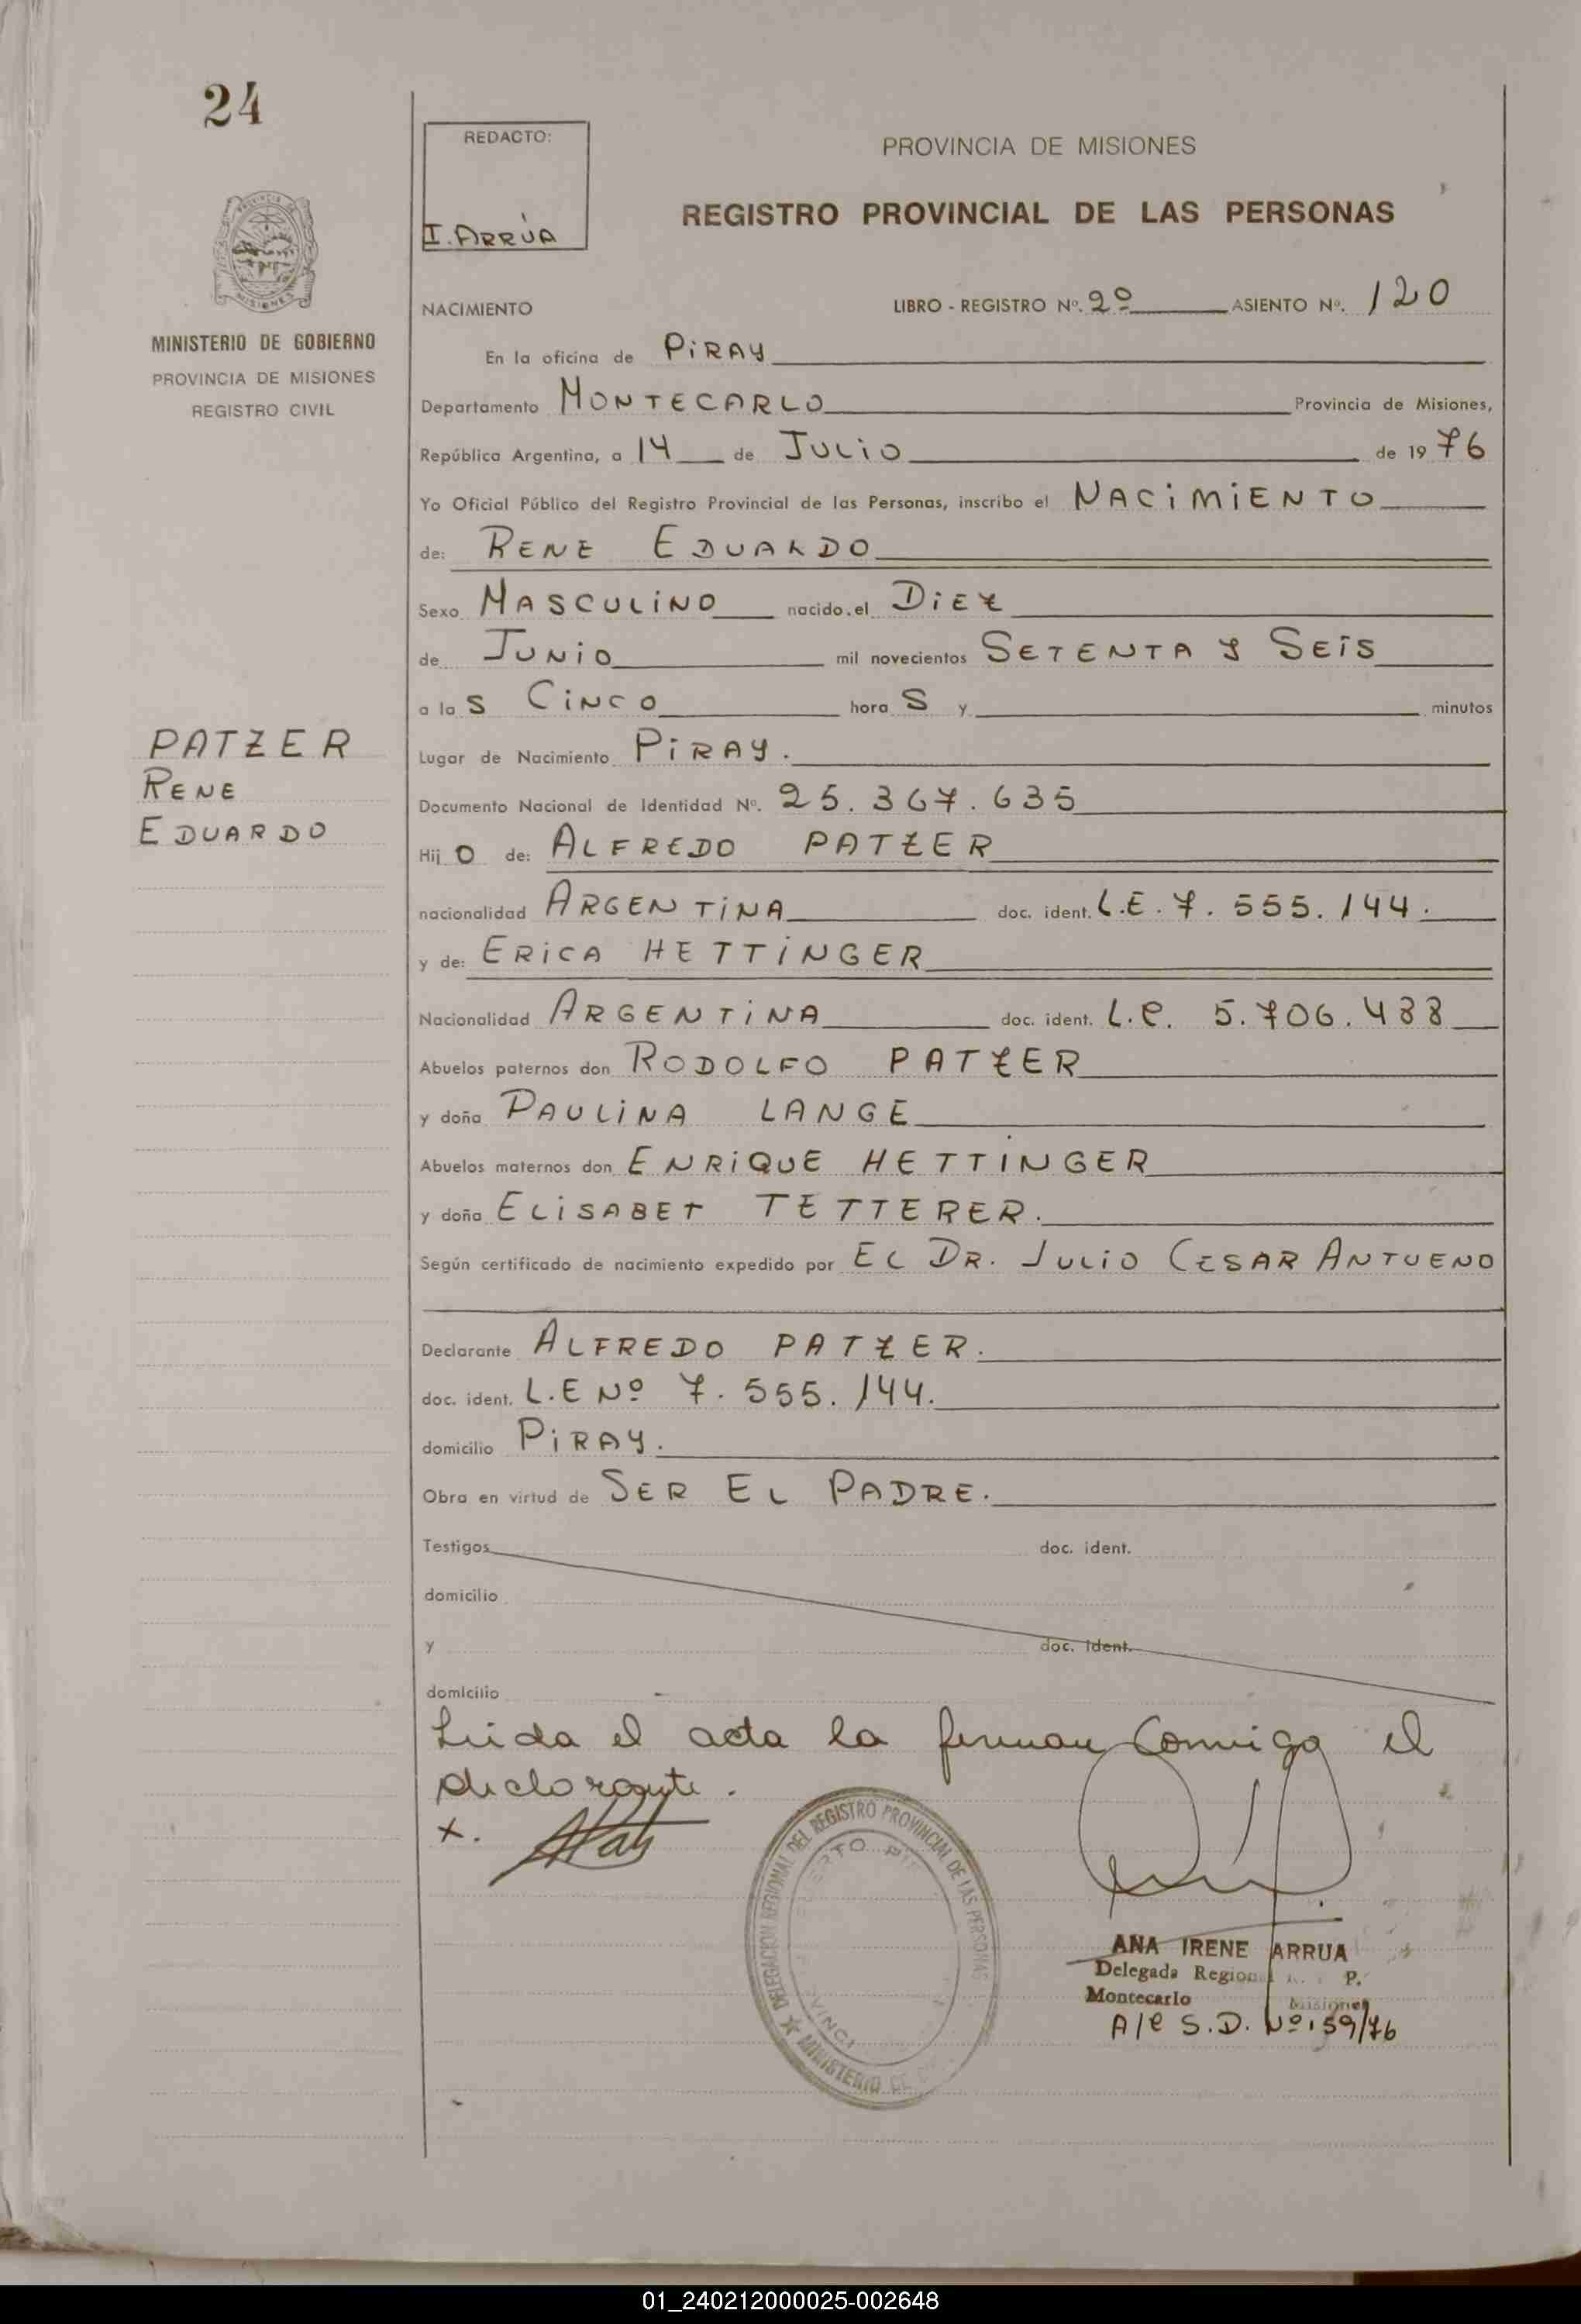 24
REDACTO:
I. ARRÚA
PROVINCIA DE MISIONES
REGISTRO PROVINCIAL DE LAS PERSONAS
MISIONES
MINISTERIO DE GOBIERNO
PROVINCIA DE MISIONES
REGISTRO CIVIL
NACIMIENTO LIBRO - REGISTRO Nº. 2º ASIENTO Nº. 120
En la oficina de PIRAY
Departamento MONTECARLO Provincia de Misiones,
República Argentina, a 14 de JULIO de 1976
Yo Oficial Público del Registro Provincial de las Personas, inscribo el NACIMIENTO
de: RENE EDUARDO
Sexo MASCULINO nacido el DIEZ
de JUNIO mil novecientos SETENTA Y SEIS
a las CINCO horaS y minutos
PATZER
RENE
EDUARDO
Lugar de Nacimiento PIRAY.
Documento Nacional de Identidad Nº. 25.367.635
Hijo de: ALFREDO PATZER
nacionalidad ARGENTINA doc. ident. L.E. 7.555.144.
y de: ERICA HETTINGER
Nacionalidad ARGENTINA doc. ident. L.C. 5.706.488
Abuelos paternos don RODOLFO PATZER
y doña PAULINA LANGE
Abuelos maternos don ENRIQUE HETTINGER
y doña ELISABET TETTERER.
Según certificado de nacimiento expedido por EL DR. JULIO CESAR ANTUENO
Declarante ALFREDO PATZER.
doc. ident. L.E Nº 7.555.144.
domicilio PIRAY.
Obra en virtud de SER EL PADRE.
Testigos doc. ident.
domicilio
y doc. ident.
domicilio
Leida el acta la firman Conmigo el
declarante.
x.
DELEGACION REGIONAL DEL REGISTRO PROVINCIAL DE LAS PERSONAS
MINISTERIO DE
ANA IRENE ARRUA
Delegada Regional P.
Montecarlo Misiones
A/C S.D. Nº 159/76
01_240212000025-002648